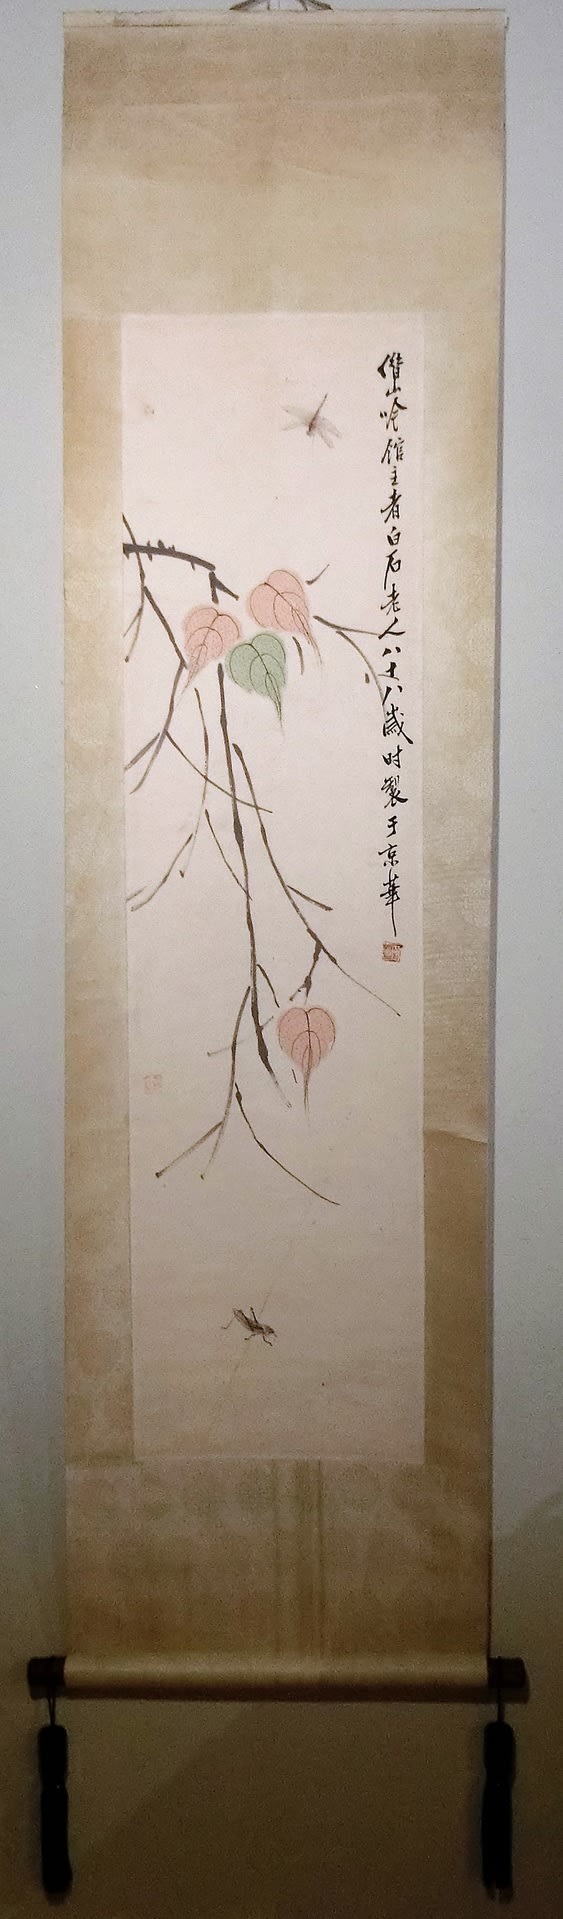 借山吟馆主者白石老人八十八岁时製于京華